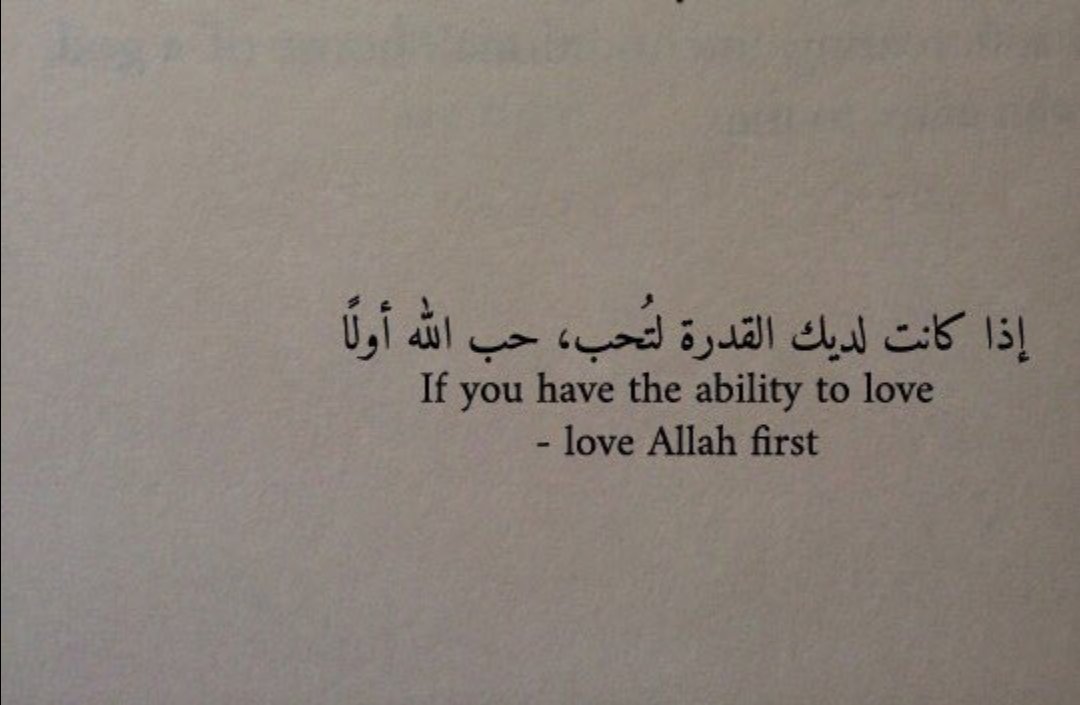 إذا كانت لديك القدرة لتُحب، حب الله أولًا
If you have the ability to love
- love Allah first